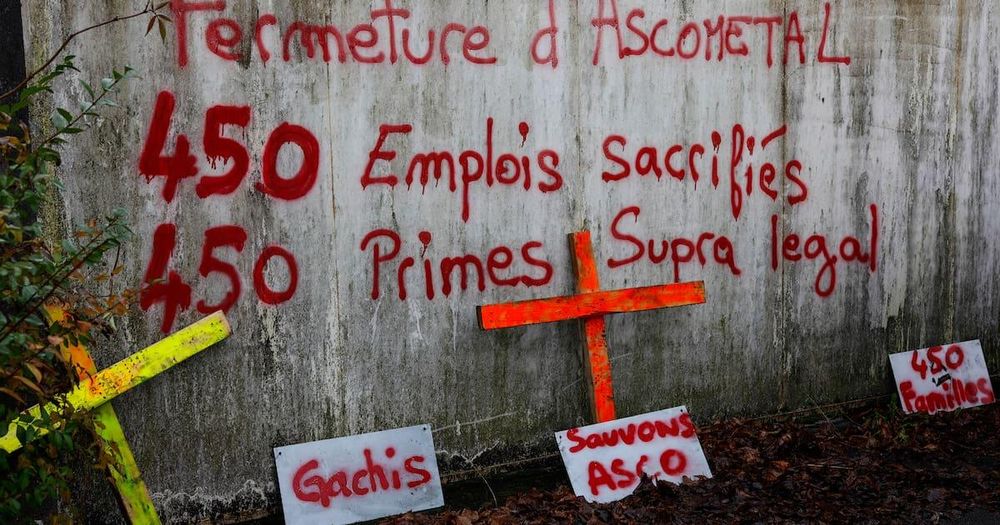 Fermeture d'ASCOMETAL
450 Emplois sacrifiés
450 Primes Supra legal
450
Familles
Sauvons
ASCO
Gachis